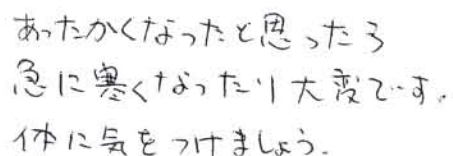 あったかくなったと思ったら
急に寒くなったり大変です.
体に気をつけましょう.